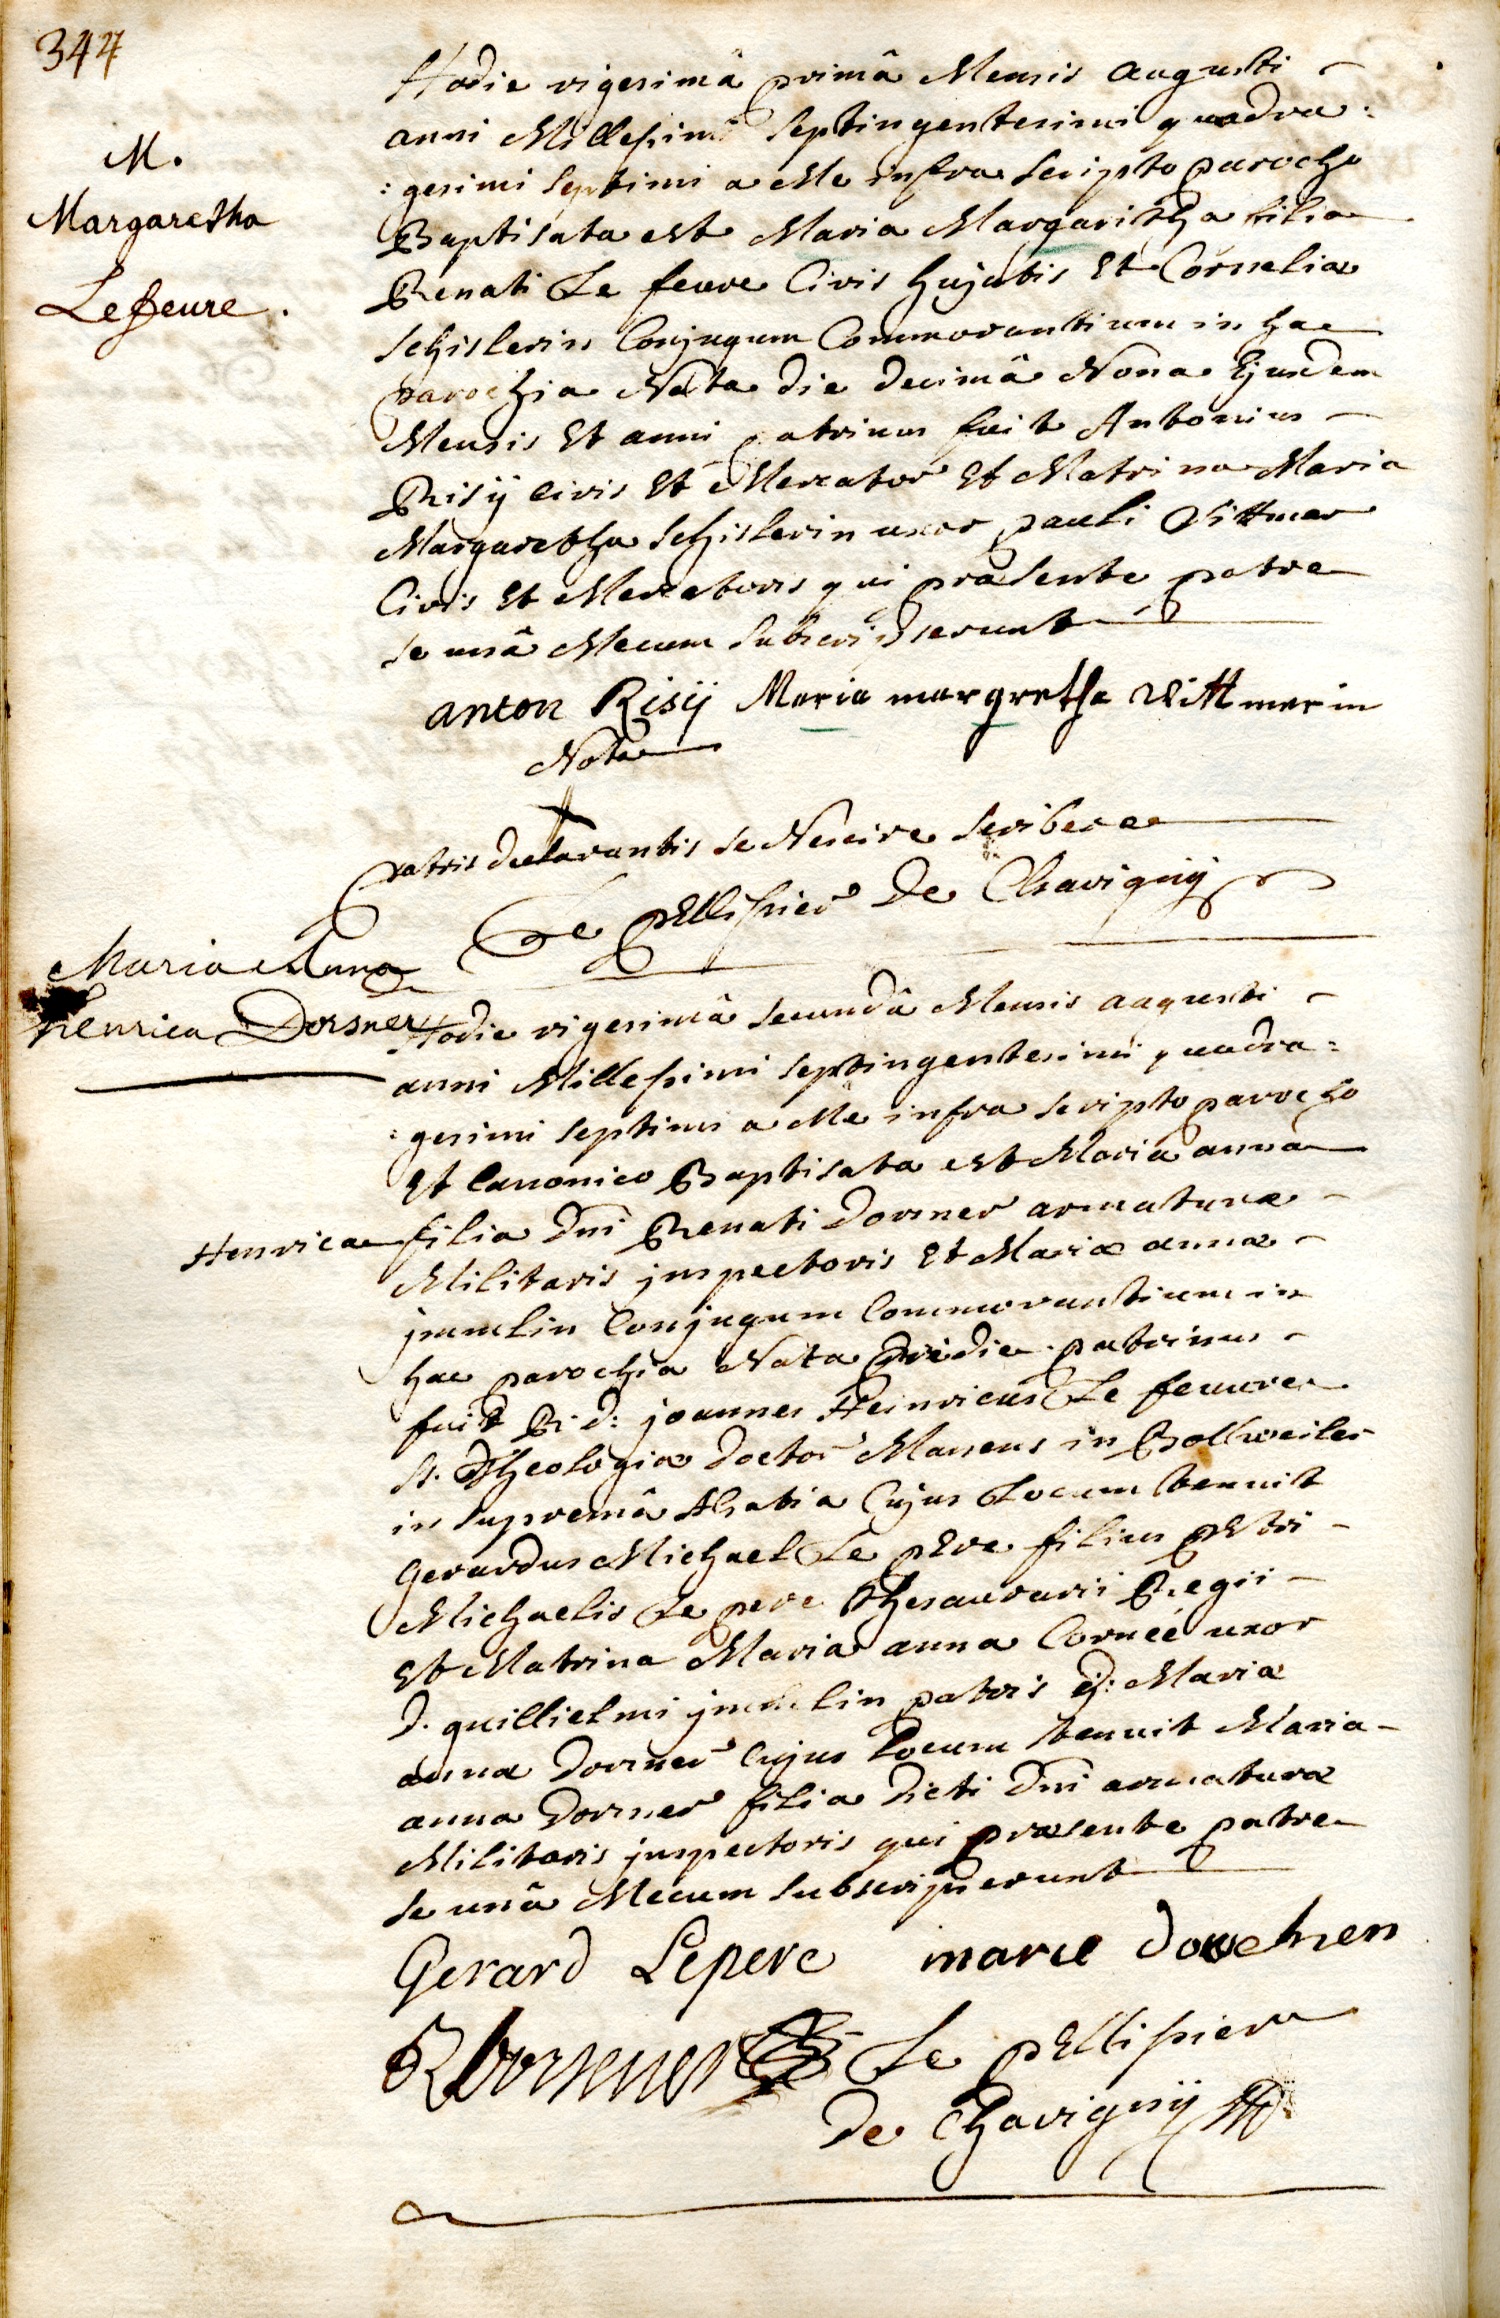 344
M.
Margaretha
Lefeure.
Hodie vigesimâ primâ Mensis augusti -
anni Millesimi septingentesimi quadra:
:gesimi septimi a Me infra scripto parocho
Baptisata est Maria Margaritha filia
Renati Le feuve Civis hujatis Et Cornelia
schislerin Conjugum Commorantium in hac
parochia Nata die decimâ Nona Ejusdem
Mensis Et anni patrinus fuit Antonius -
Risÿ civis Et Mercator Et Matrina Maria
Margaretha schislerin uxor pauli Vittmer
Civis Et Mercatoris qui præsente patre
se unâ Mecum subscripserunt
anton Risÿ Maria margretha Vittmerin
Nota
patris declarantis se Nescire scribere
Le pEllissier De Chavignÿ
Maria Anna
henrica Dorsner
Hodie vigesimâ secundâ Mensis augusti -
anni Millesimi septingentesimi quadra:
:gesimi septimi a Me infra scripto parocho
Et Canonico Baptisata est Maria anna
Henrica filia Dni Renati Dorsner armaturæ -
Militaris jnspectoris Et Mariæ annæ -
jmmlin Conjugum Commorantium in
hac parochia Nata pridie patrinus -
fuit R. d: joannes Heinricus Le feuvre
SS. Theologiæ doctor Manens in Bollweiler
in supremâ Alsatia Cujus Locum tenuit
Gerardus Michael Le pEre filius pEtri -
Michaelis Le pere thesaurarii Regii -
Et Matrina Maria anna Cornéé uxor
D. guillielmi jmmlin patris Mariæ
annæ Dorsner Cujus Locum tenuit Maria -
anna Dorsner filia dicti Dni armaturæ
Militaris jnspectoris qui præsente patre
se unâ Mecum subscripserunt
Gerard Lepere marie
RDorsner Le pEllissier
de Chavignÿ